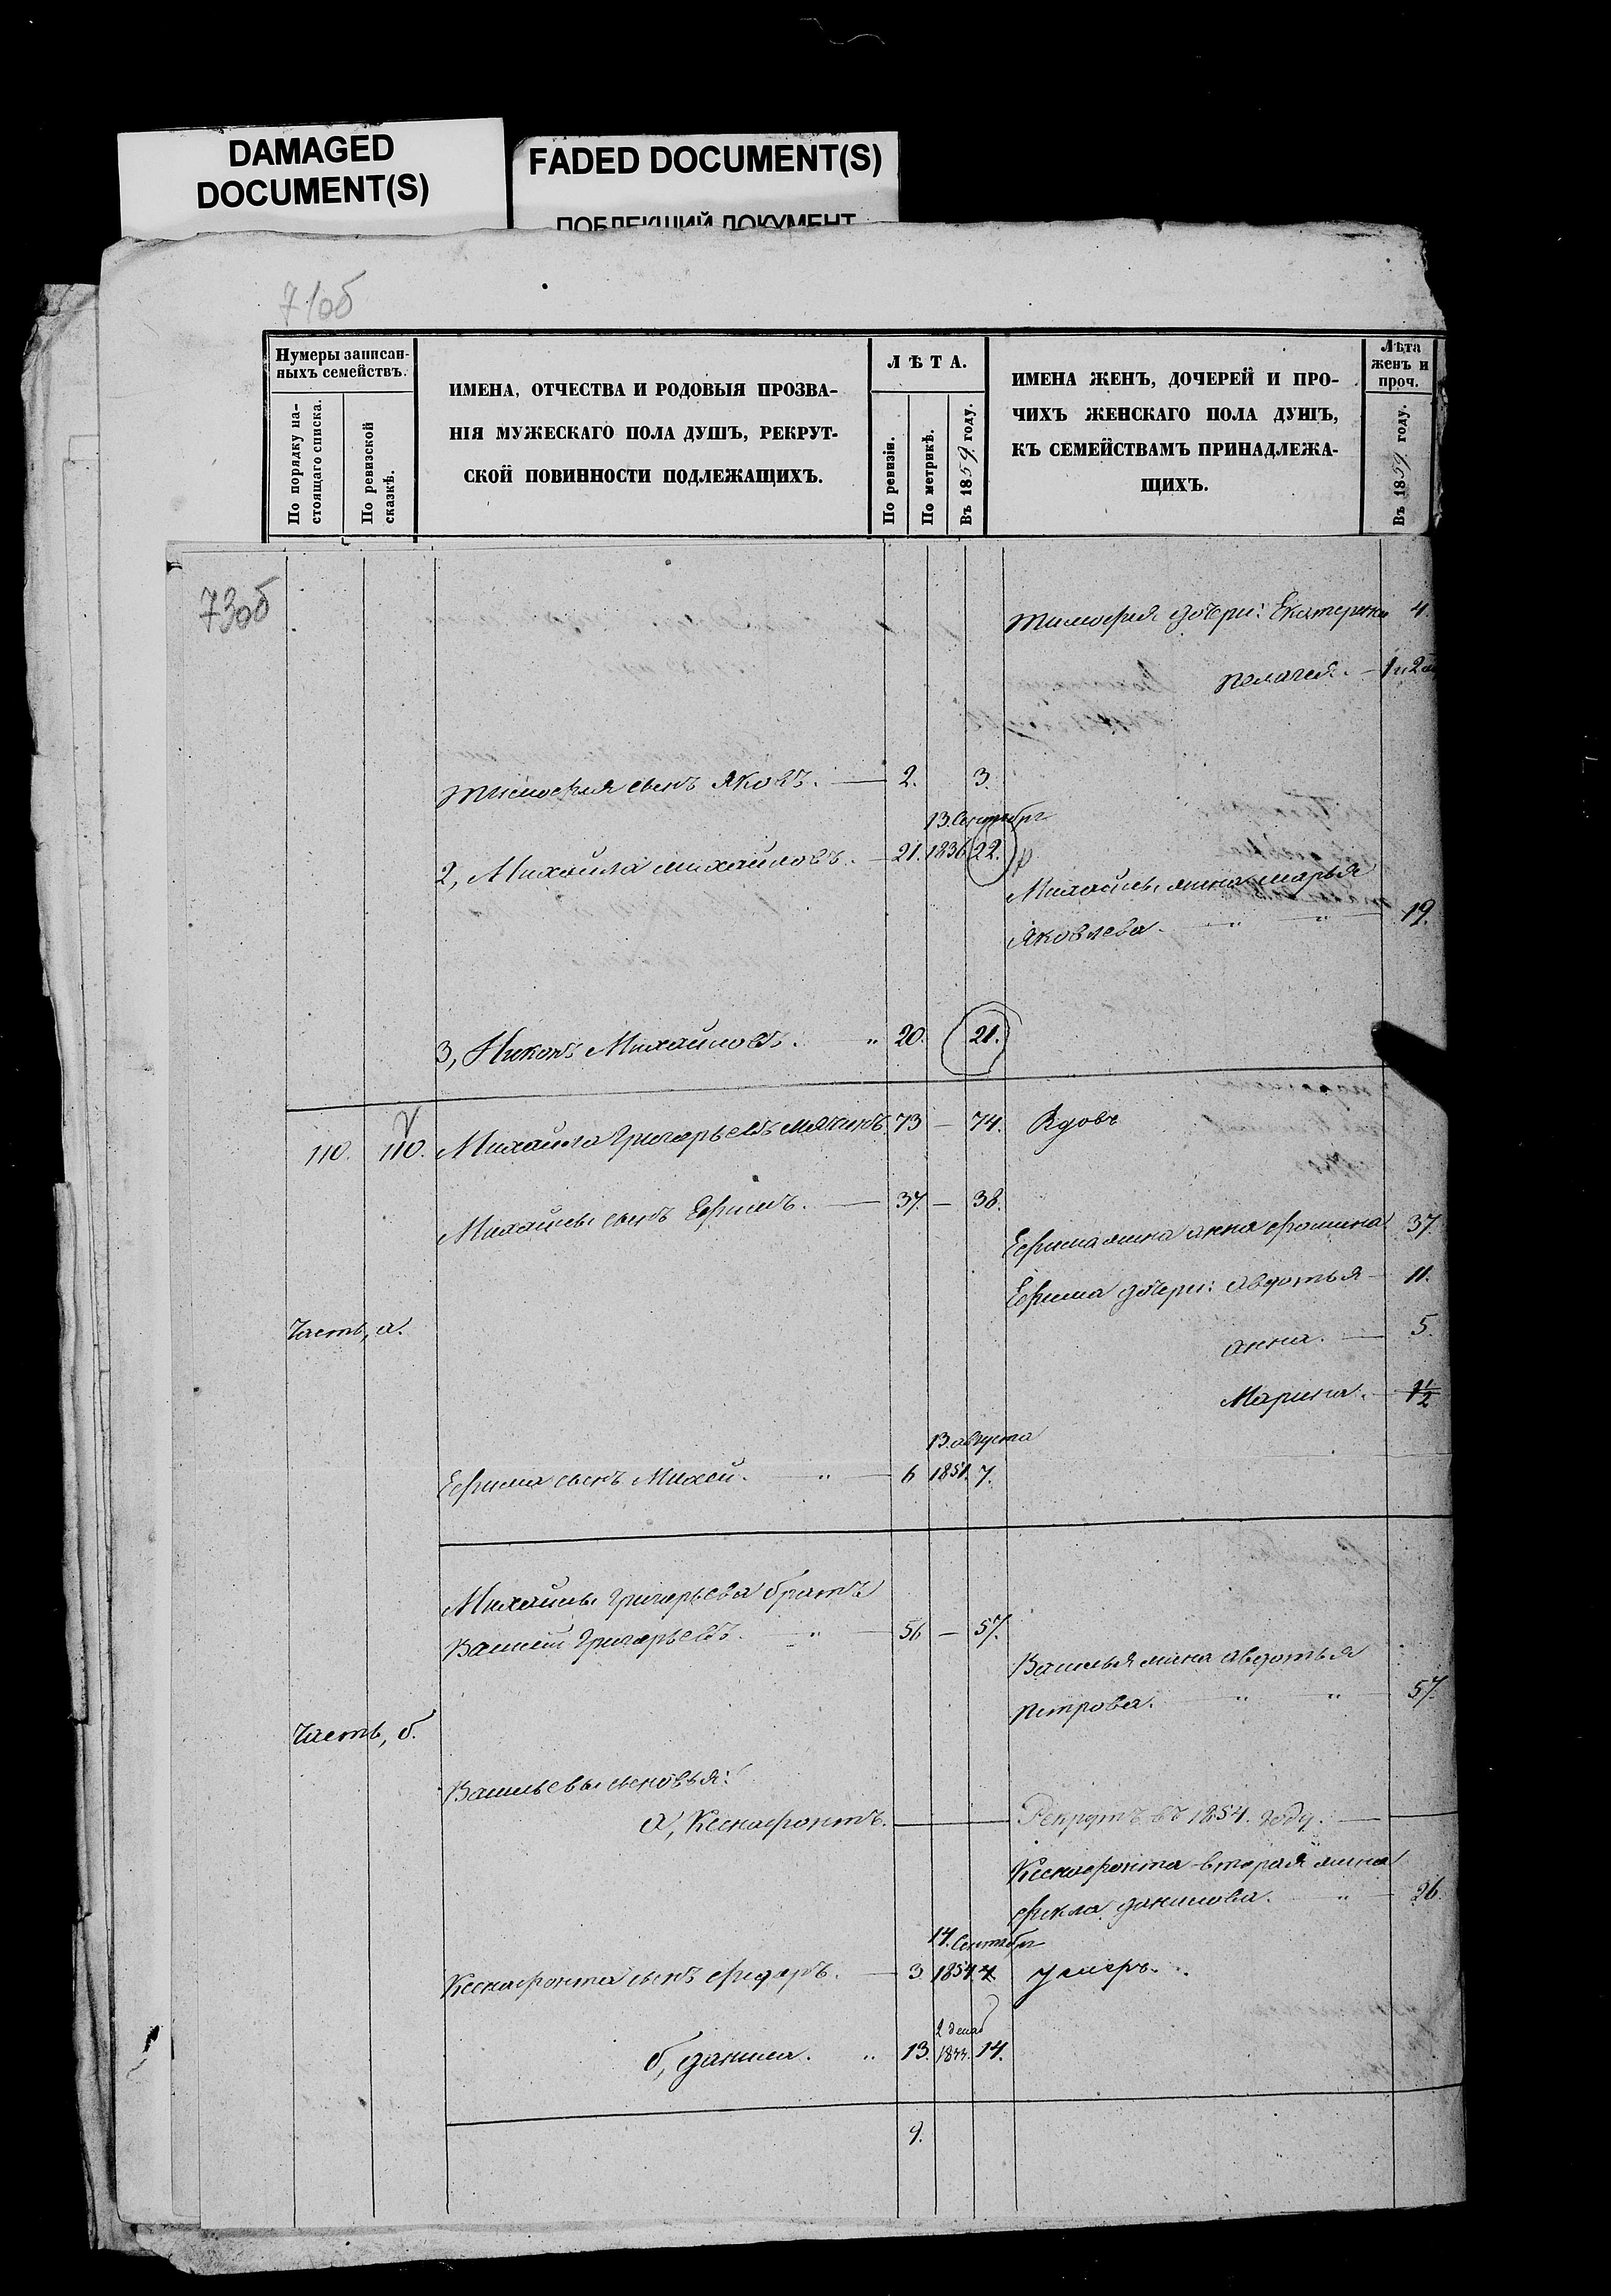 DAMAGED
DOCUMENT(S)
FADED DOCUMENT(S)
ПОБЛЕКШИЙ ДОКУМЕНТ
71об
Нумеры записан-
ныхъ семействъ.
По порядку на-
стоящаго списка.
По ревизской
сказкѣ.
ИМЕНА, ОТЧЕСТВА И РОДОВЫЯ ПРОЗВА-
НІЯ МУЖЕСКАГО ПОЛА ДУШЪ, РЕКРУТ-
СКОЙ ПОВИННОСТИ ПОДЛЕЖАЩИХЪ.
ЛѢТА.
По ревизіи.
По метрикѣ.
Въ 1859 году.
ИМЕНА ЖЕНЪ, ДОЧЕРЕЙ И ПРО-
ЧИХЪ ЖЕНСКАГО ПОЛА ДУШЪ,
КЪ СЕМЕЙСТВАМЪ ПРИНАДЛЕЖА-
ЩИХЪ.
Лѣта
женъ и
проч.
Въ 1859 году.
73об
Тимофея дочери: Екатерина 4.
Пелагея. — 1 и 2
Тимофея сынъ Яковъ. — 2. 3.
13. Сентября
2, Михайла Михайловъ. — 21. 1836 22.
Михайлы жена Марья
Яковлева. " " 19.
3, Никонъ Михайловъ. " 20. 21.
110. 110. Михайла Григорьевъ Мякинъ. 73 — 74. Вдовъ
Михайлы сынъ Ефимъ. — 37. — 38.
Ефима жена Анна Фомина 37.
Ефима дочери: Авдотья — 11.
Часть, а.
Анна. — 5.
Марина. — 1/2
13. августа
Ефима сынъ Михей. " — 6 1851. 7.
Михайлы Григорьева братъ
Василий Григорьевъ. " — 56 — 57.
Василья жена Авдотья
Петрова. " " 57.
Часть, б.
Васильевы сыновья:
а, Ксенофонтъ. — Рекрутъ въ 1854. году. —
Ксенофонта вторая жена
Фекла Данилова. " — 26.
14. Сентября
Ксенофонта сынъ Федоръ. — 3. 1854. 4 умеръ.
2 декаб
б, Данила. " 13. 1844. 14.
9.